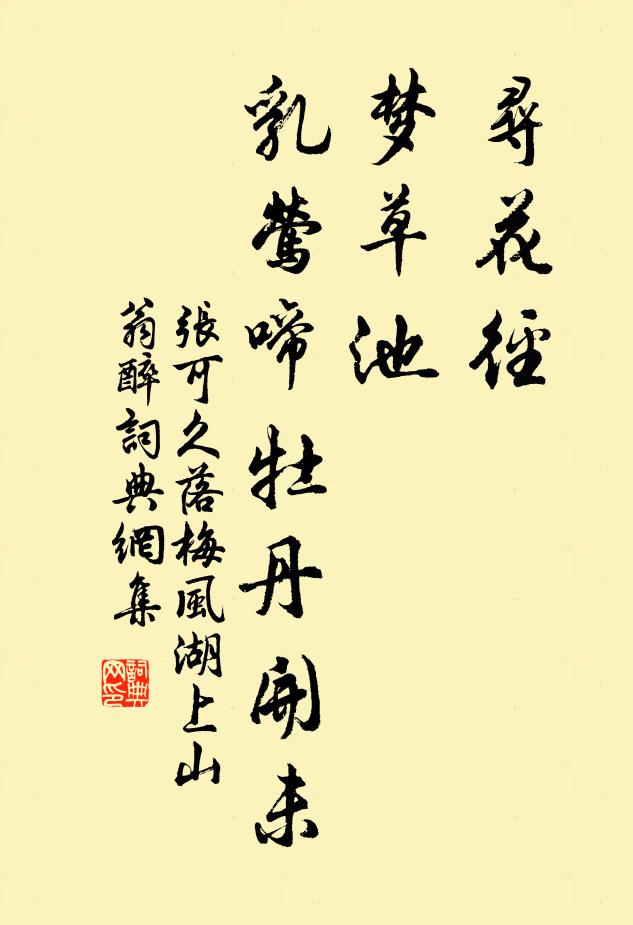 尋花徑
梦草池
乳鶯啼牡丹開未
張可久落梅風湖上山
翁醉詞典網集
詞典网印